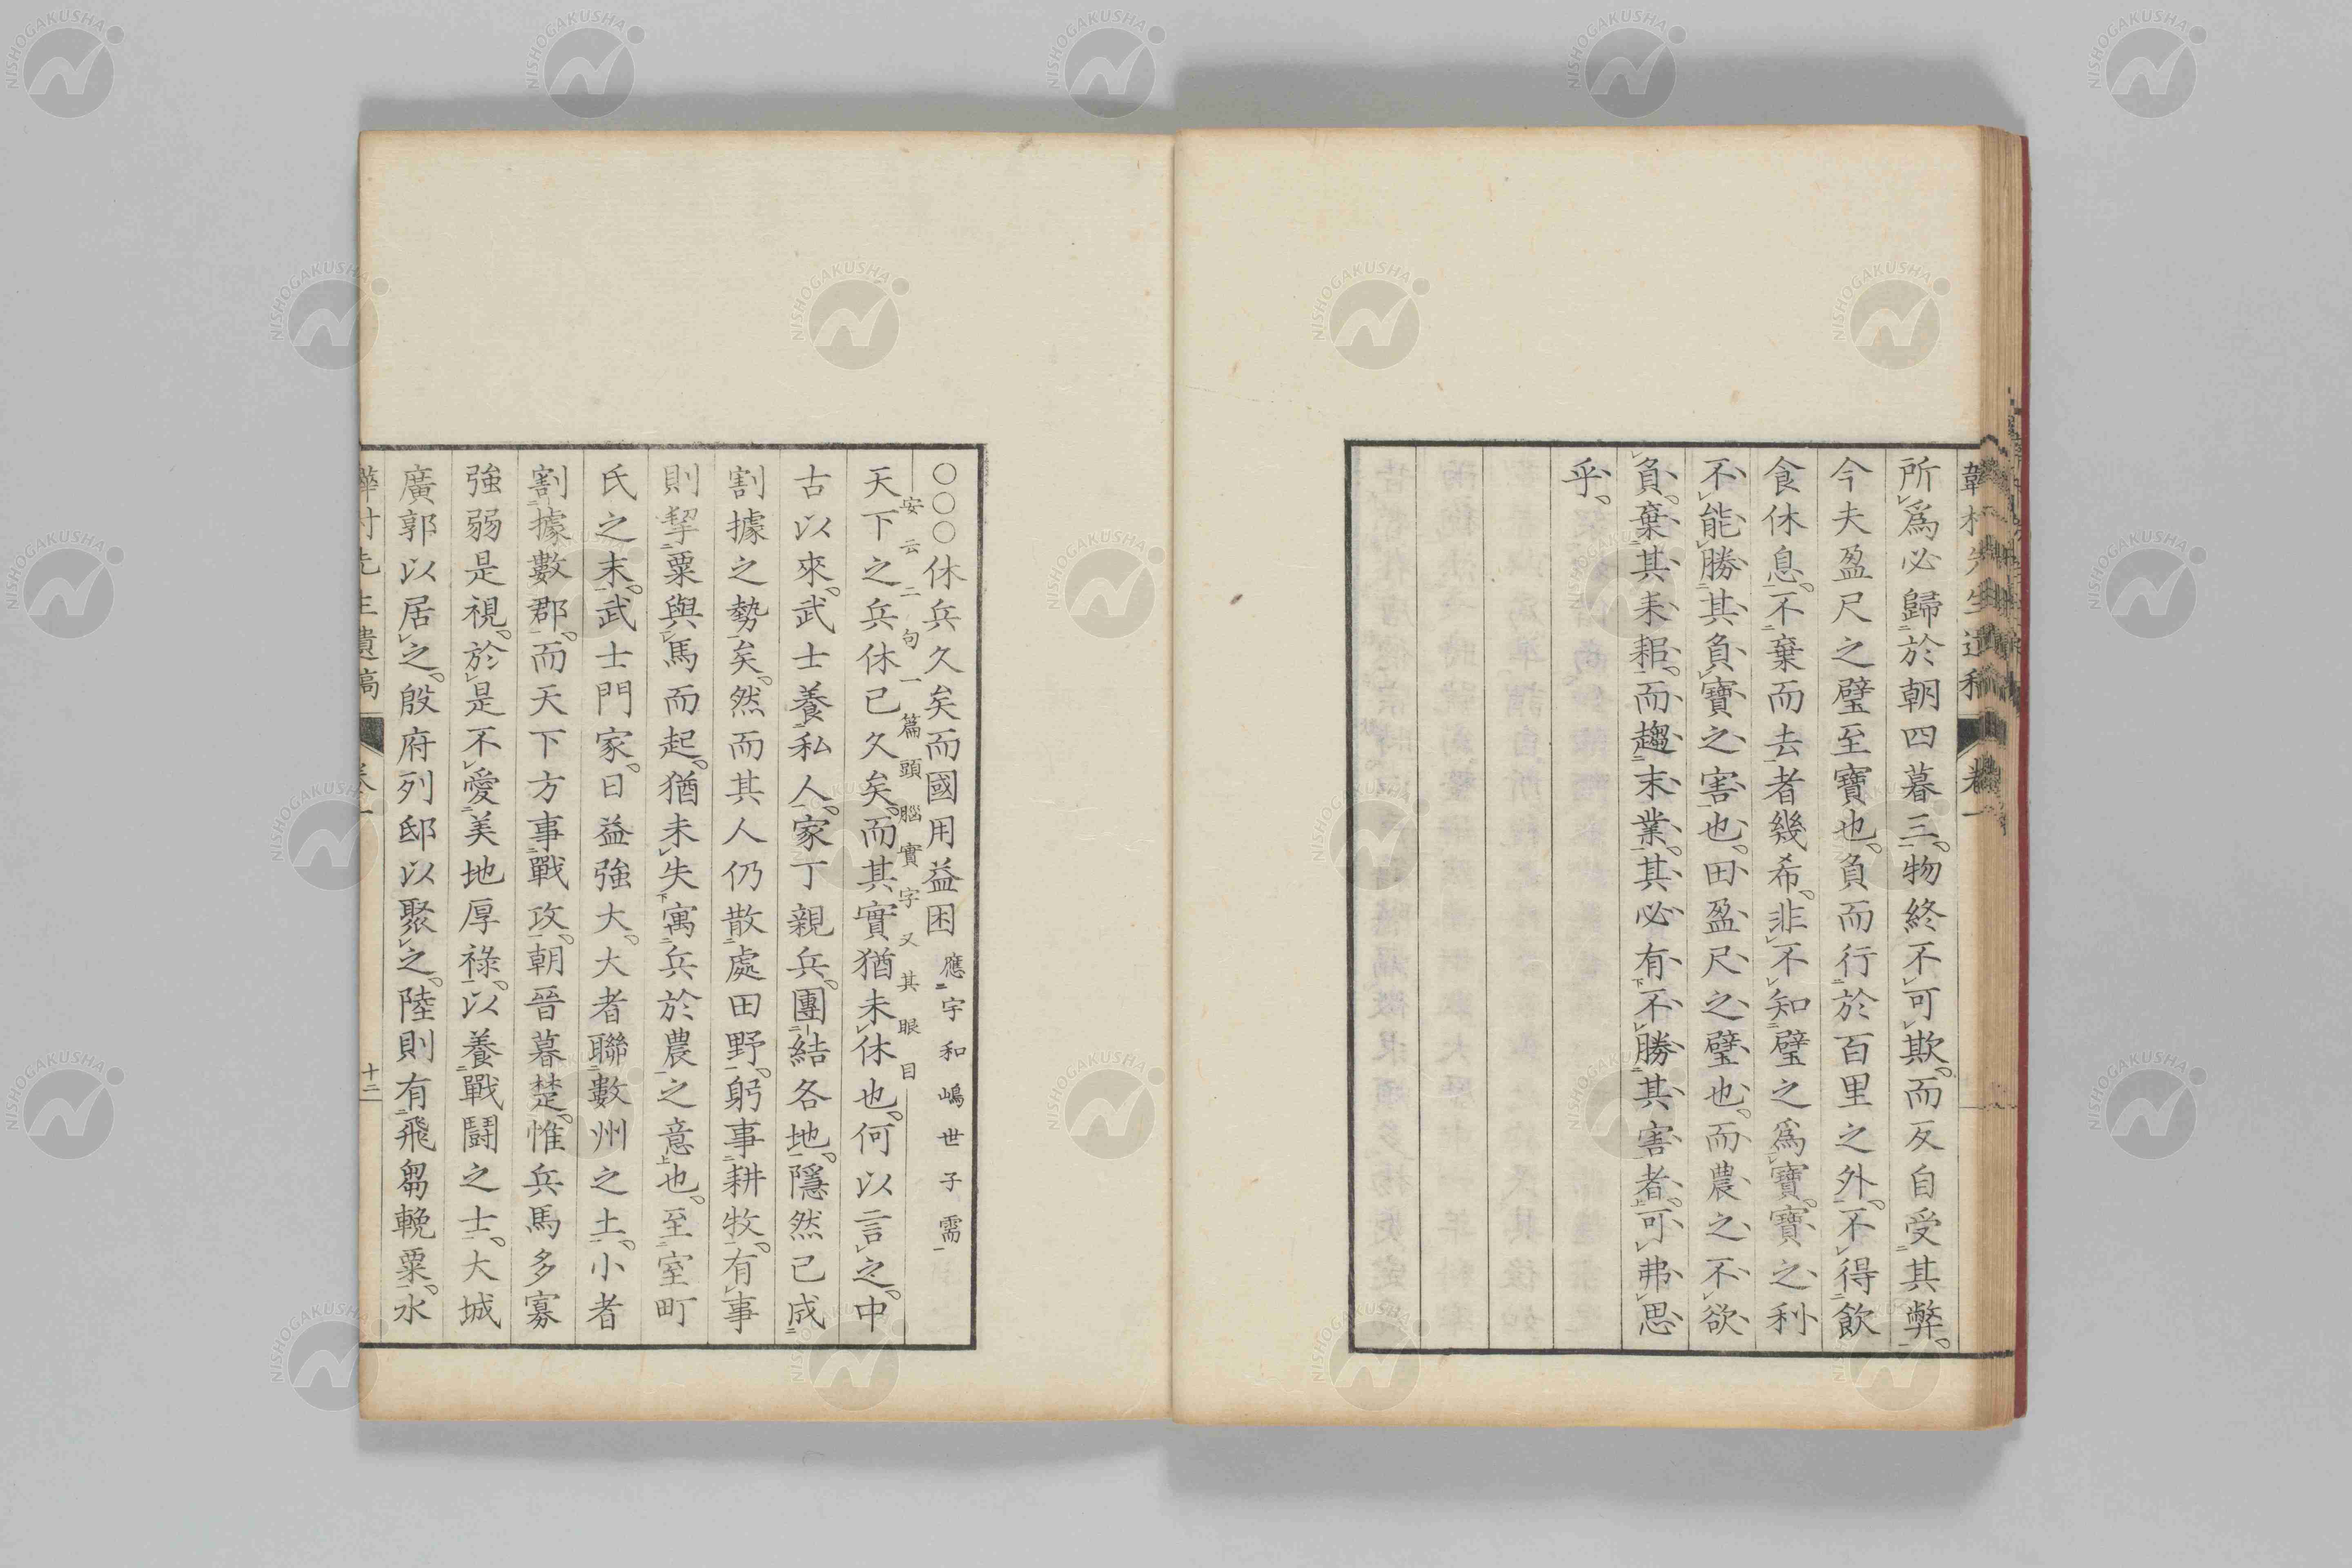 韡村先生遺稿 卷一
所爲必歸於朝四暮三。物終不可欺。而反自受其弊。
今夫盈尺之璧至寶也。負而行於百里之外。不得飮
食休息。不棄而去者幾希。非不知璧之爲寶。寶之利
不能勝其負。寶之害也。田盈尺之璧也。而農之不欲
負。棄其耒耜。而趨末業。其必有不勝其害者。可弗思
乎。
〇〇〇休兵久矣而國用益困 應宇和嶋世子需
安云二句一篇頭腦實字又其眼目
天下之兵休已久矣。而其實猶未休也。何以言之。中
古以來。武士養私人。家丁親兵。團結各地。隱然已成
割據之勢矣。然而其人仍散處田野。躬事耕牧。有事
則挈粟與馬而起。猶未失寓兵於農之意也。至室町
氏之末。武士門家。日益強大。大者聯數州之土。小者
割據數郡。而天下方事戰攻。朝晉暮楚。惟兵馬多寡
強弱是視。於是不愛美地厚祿。以養戰鬪之士。大城
廣郭以居之。殷府列邸以聚之。陸則有飛芻輓粟。水
韡村先生遺稿 卷一 十二
NISHOGAKUSHA